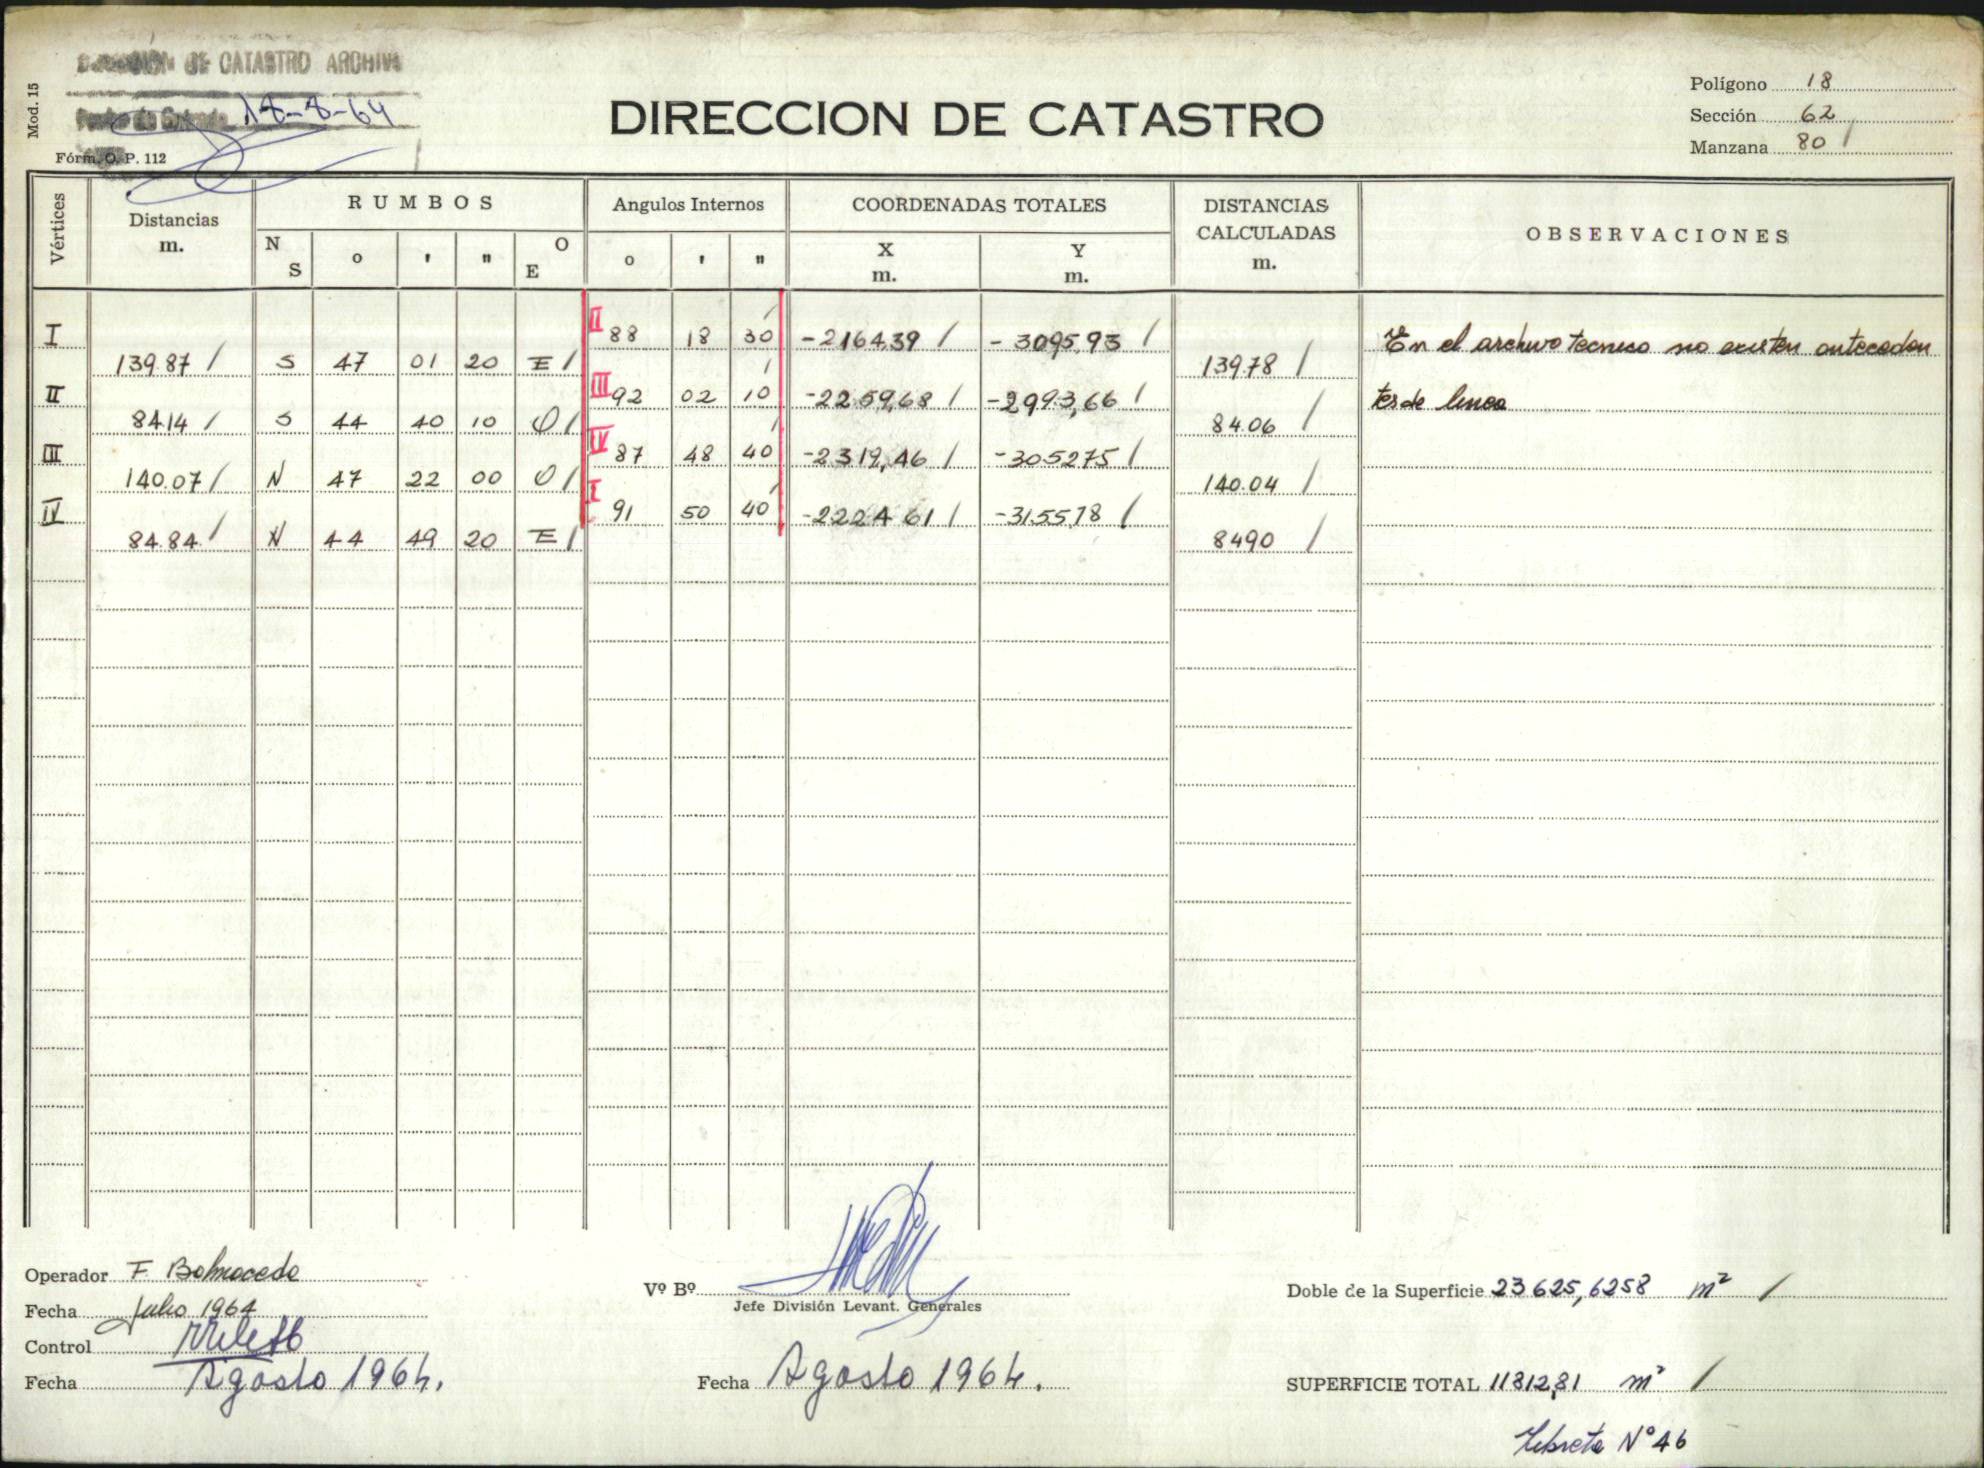 DIRECCION DE CATASTRO ARCHIVO
Fecha de Entrada 18-8-64
Mod. 15
Fórm. O. P. 112
DIRECCION DE CATASTRO
Polígono 18
Sección 62
Manzana 80 /
Vértices
Distancias m.
RUMBOS
N S ° ' " O E
Angulos Internos
° ' "
COORDENADAS TOTALES
X m. Y m.
DISTANCIAS CALCULADAS m.
OBSERVACIONES
I II 88 18 30 / -2164,39 / -3095,93 / En el archivo tecnico no existen anteceden
139.87 / S 47 01 20 E / 139.78 /
II III 92 02 10 / -2259,68 / -2993,66 / tes de linea
84.14 / S 44 40 10 O / 84.06 /
III IV 87 48 40 / -2319,46 / -305275 /
140.07 / N 47 22 00 O / 140.04 /
IV I 91 50 40 / -2224 61 / -315578 /
84.84 / N 44 49 20 E / 8490 /
Operador F. Balmaceda
Fecha Julio 1964
Control
Fecha Agosto 1964.
Vº Bº
Jefe División Levant. Generales
Fecha Agosto 1964.
Doble de la Superficie 23625,6258 m² /
SUPERFICIE TOTAL 11812,81 m² /
Libreta Nº 46